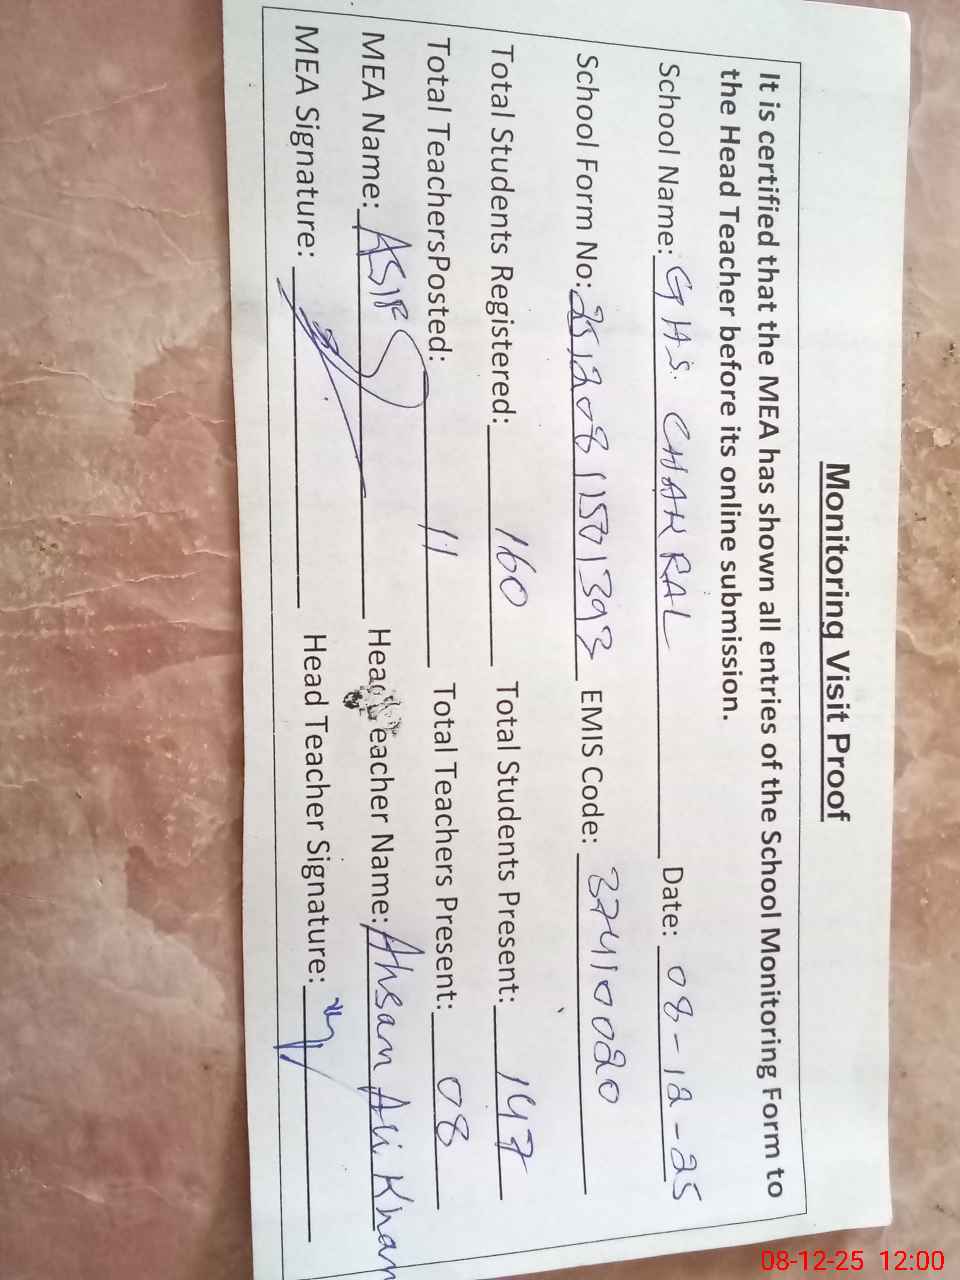 Monitoring Visit Proof
It is certified that the MEA has shown all entries of the School Monitoring Form to
the Head Teacher before its online submission.
School Name: G H S. CHAKRAL Date: 08-12-25
School Form No: 25120811501393 EMIS Code: 37410020
Total Students Registered: 160 Total Students Present: 147
Total TeachersPosted: 11 Total Teachers Present: 08
MEA Name: ASIF Head Teacher Name: Ahsan Ali Khan
MEA Signature: Head Teacher Signature:
08-12-25 12:00